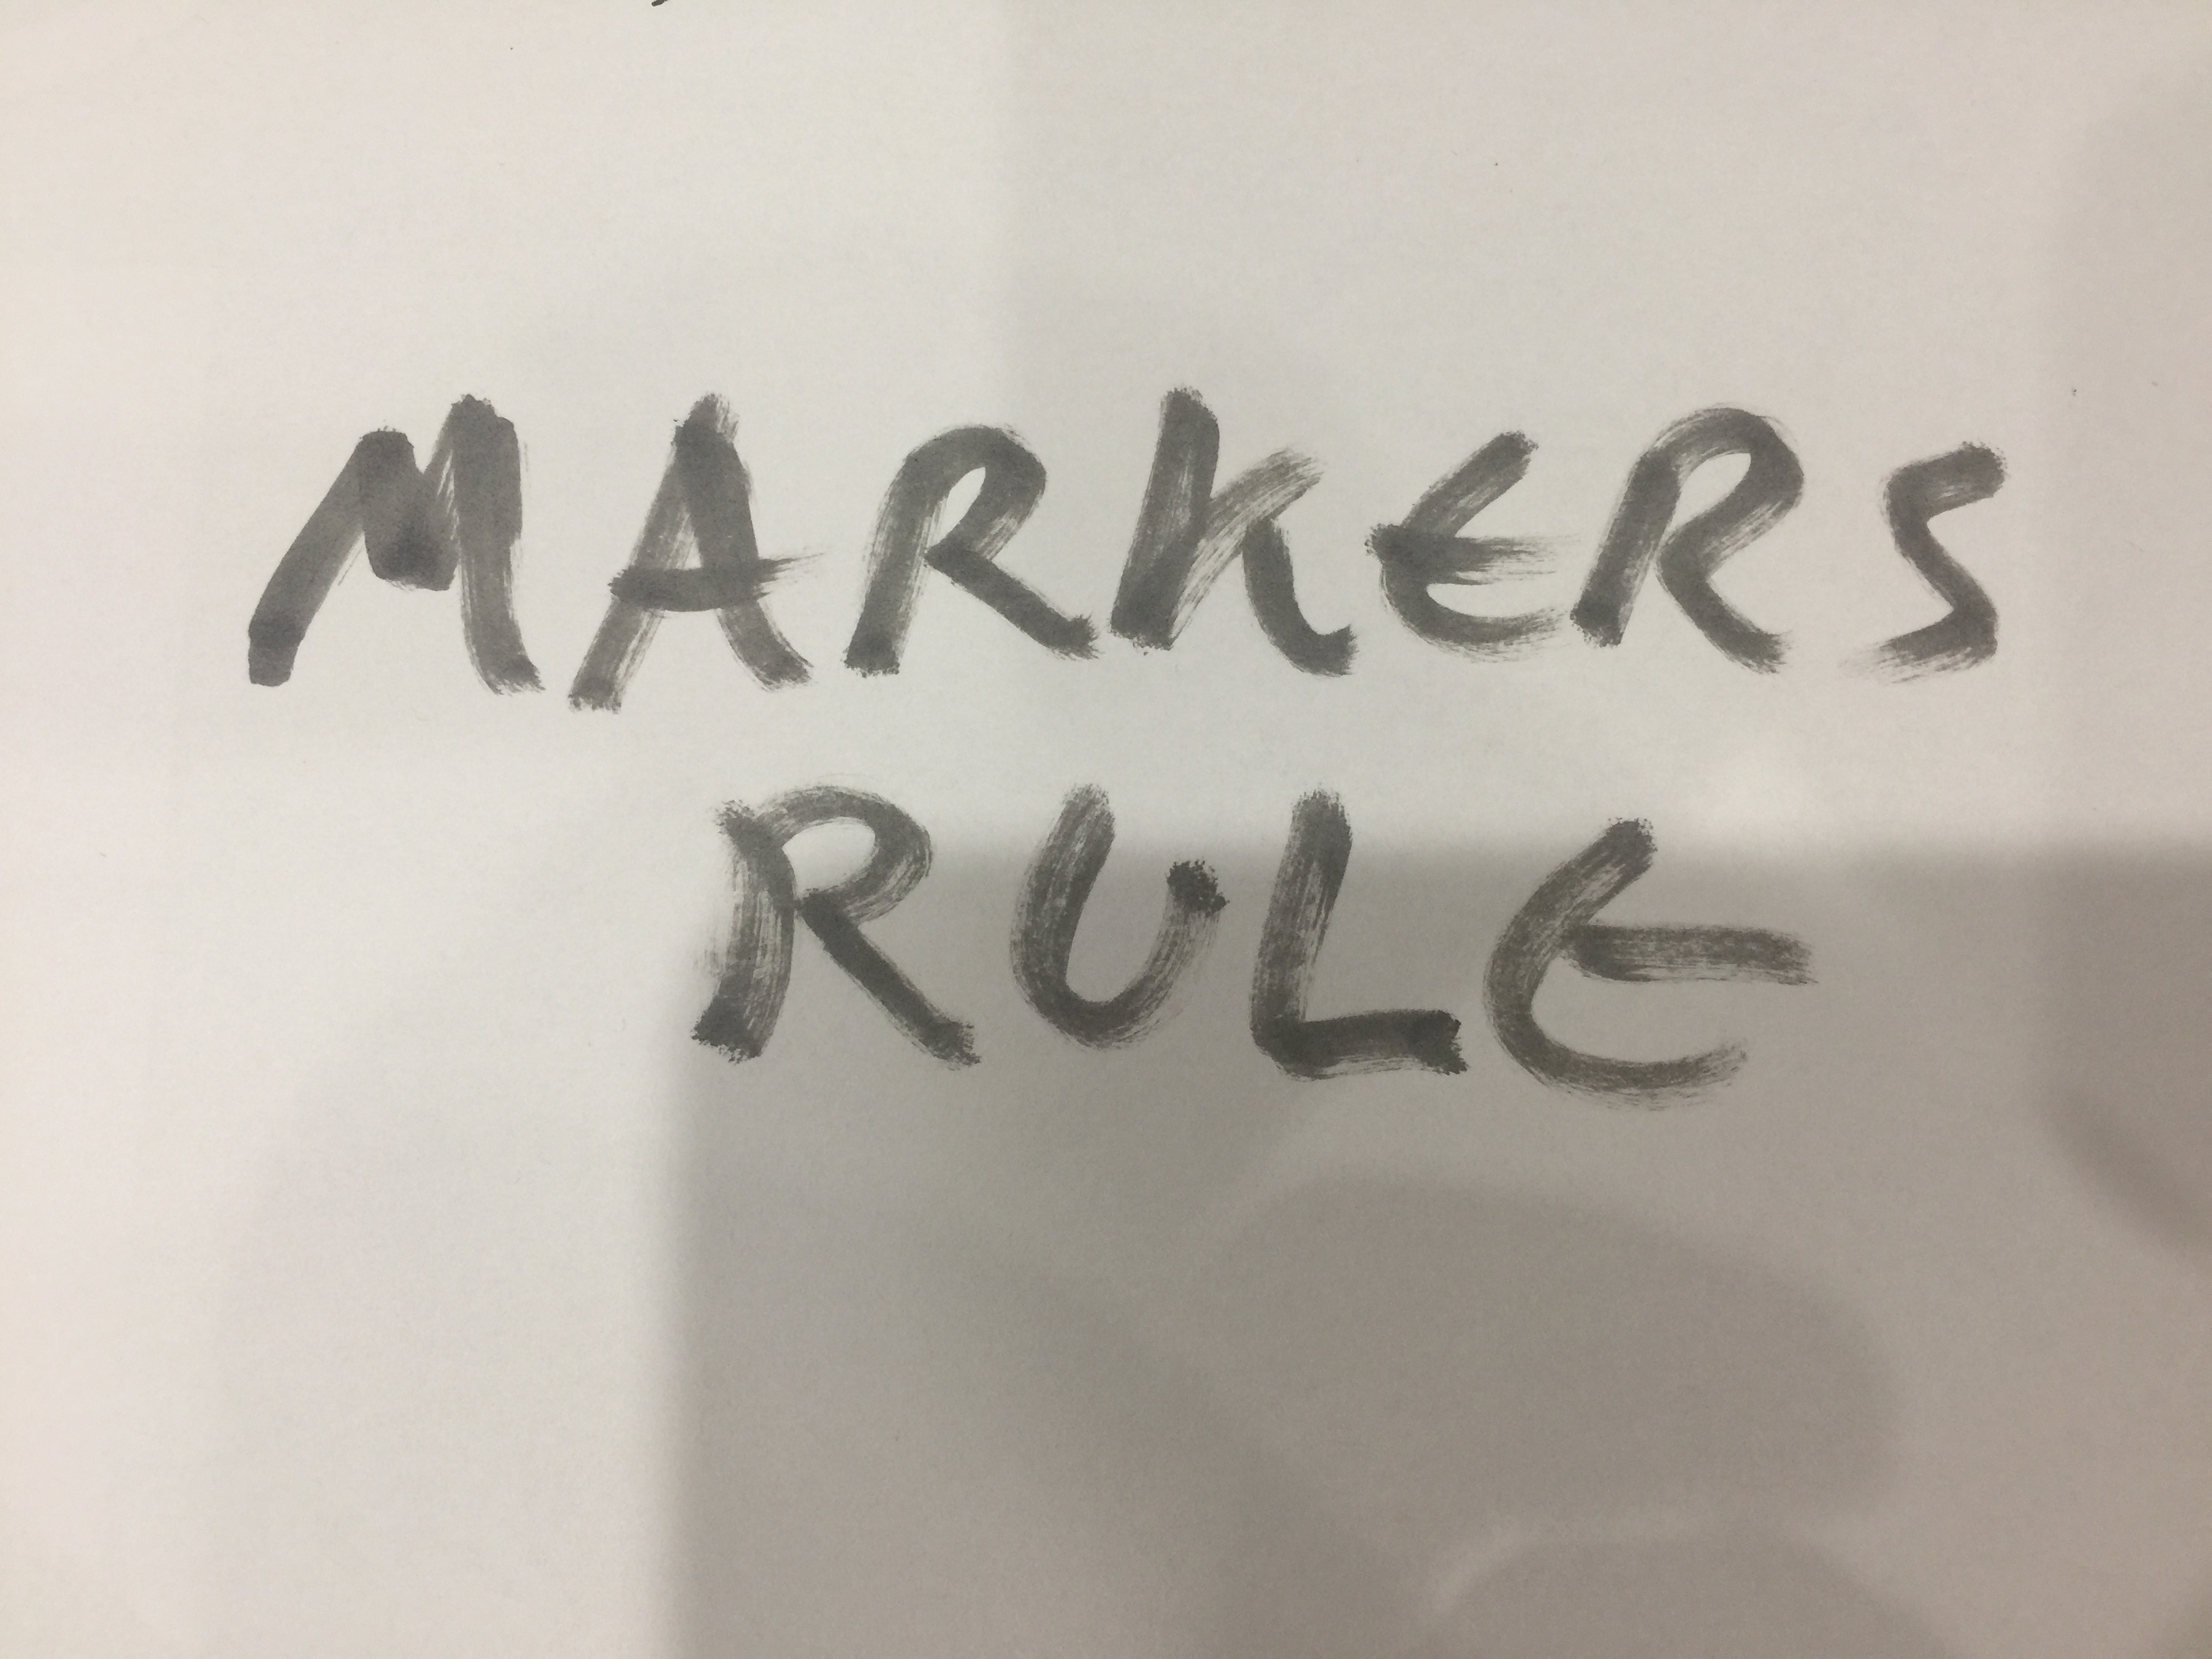 MARKERS
RULE